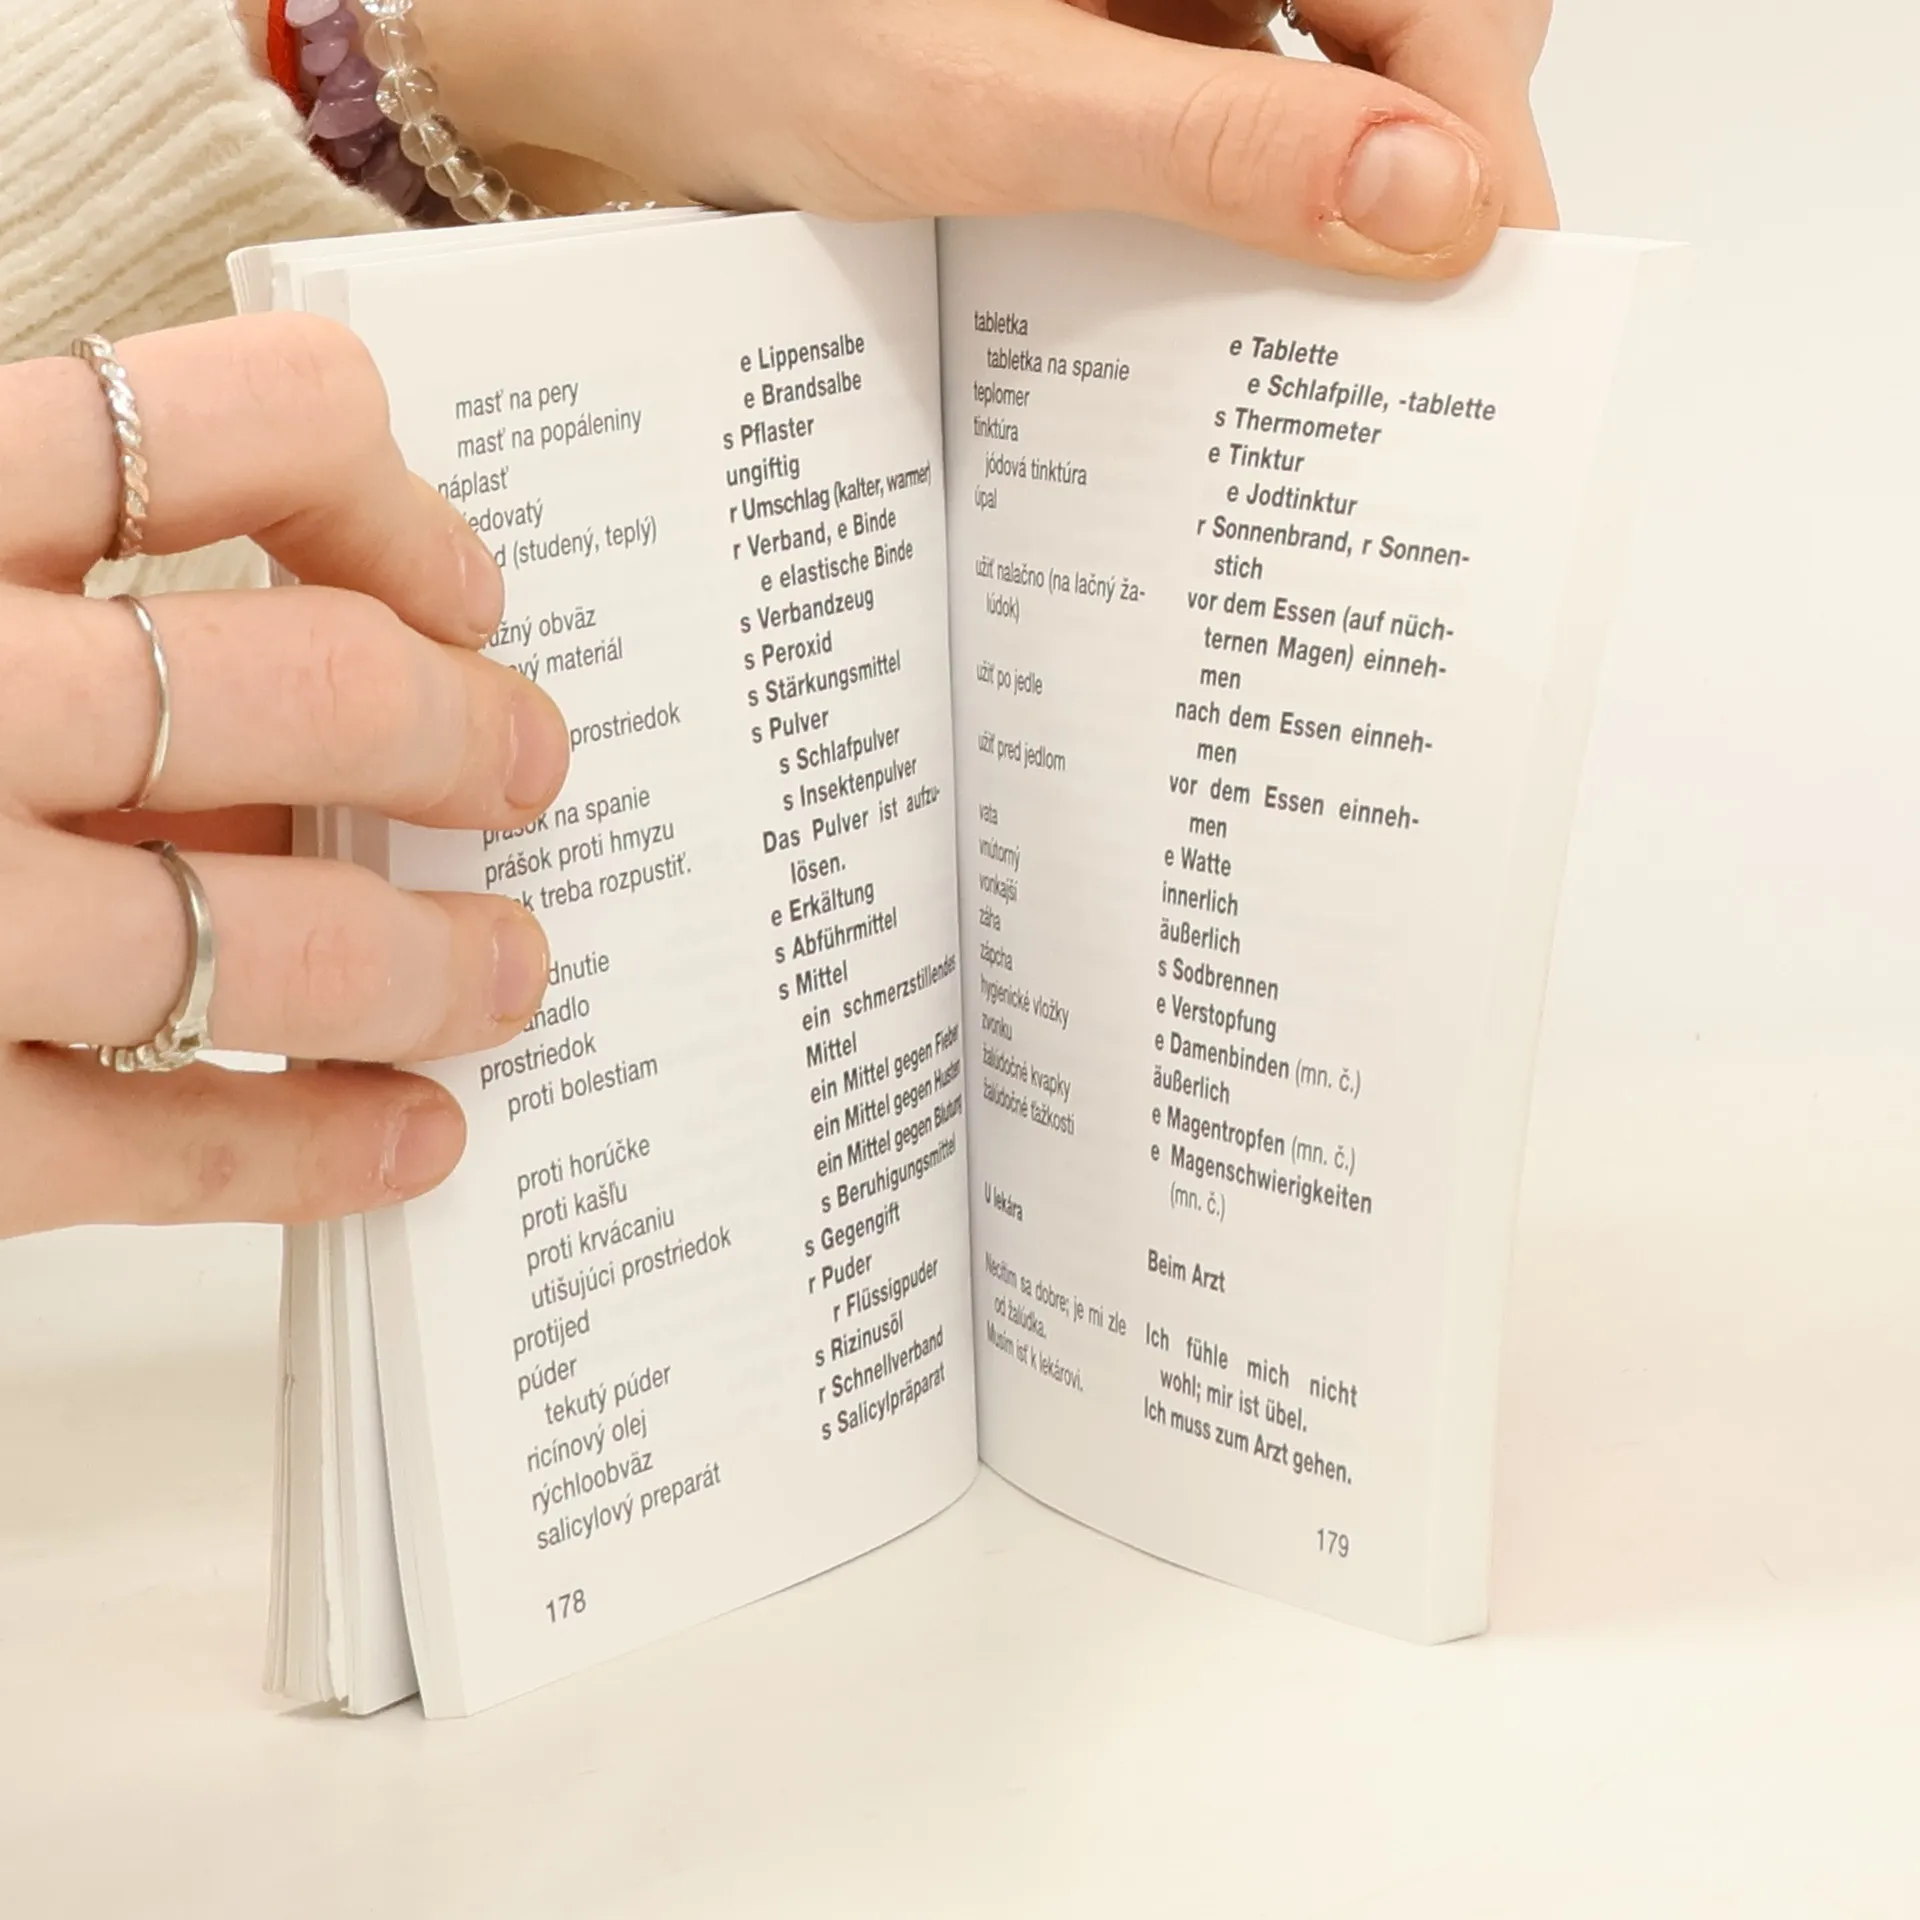 masť na pery
masť na popáleniny
náplasť
(studený, teplý)
obväz
materiál
prostriedok
na spanie
prášok proti hmyzu
treba rozpustiť.
prostriedok
proti bolestiam
proti horúčke
proti kašľu
proti krvácaniu
utišujúci prostriedok
protijed
púder
tekutý púder
ricínový olej
rýchloobväz
salicylový preparát
e Lippensalbe
e Brandsalbe
s Pflaster
ungiftig
r Umschlag (kalter, warmer)
r Verband, e Binde
e elastische Binde
s Verbandzeug
s Peroxid
s Stärkungsmittel
s Pulver
s Schlafpulver
s Insektenpulver
Das Pulver ist aufzu-
lösen.
e Erkältung
s Abführmittel
s Mittel
ein schmerzstillendes
Mittel
ein Mittel gegen Fieber
ein Mittel gegen Husten
ein Mittel gegen Blutung
s Beruhigungsmittel
s Gegengift
r Puder
r Flüssigpuder
s Rizinusöl
r Schnellverband
s Salicylpräparat
178
tabletka
tabletka na spanie
teplomer
tinktúra
jódová tinktúra
úpal
užiť nalačno (na lačný ža-
lúdok)
užiť po jedle
užiť pred jedlom
vata
vnútorný
vonkajší
záha
zápcha
hygienické vložky
zvonku
žalúdočné kvapky
žalúdočné ťažkosti
U lekára
Necítim sa dobre; je mi zle
od žalúdka.
Musím ísť k lekárovi.
e Tablette
e Schlafpille, -tablette
s Thermometer
e Tinktur
e Jodtinktur
r Sonnenbrand, r Sonnen-
stich
vor dem Essen (auf nüch-
ternen Magen) einneh-
men
nach dem Essen einneh-
men
vor dem Essen einneh-
men
e Watte
innerlich
äußerlich
s Sodbrennen
e Verstopfung
e Damenbinden (mn. č.)
äußerlich
e Magentropfen (mn. č.)
e Magenschwierigkeiten
(mn. č.)
Beim Arzt
Ich fühle mich nicht
wohl; mir ist übel.
Ich muss zum Arzt gehen.
179